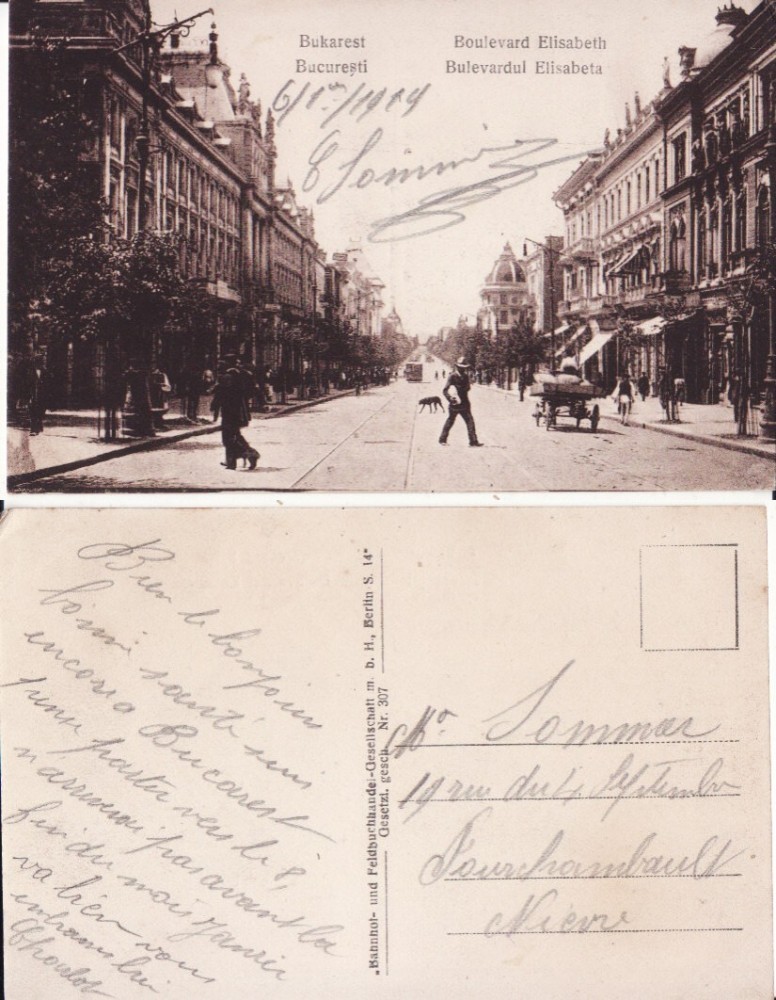 Bukarest
București
Boulevard Elisabeth
Bulevardul Elisabeta
6/1er/1919
C Sommer
Bien le bonjour
bonne santé suis
encore a Bucarest
pense partir vers le 8,
n'arriverai pas avant la
fin du mois Janvier
va bien vous
embrasse
„Bahnhof- und Feldbuchhandel-Gesellschaft m. b. H., Berlin S. 14“
Gesetzl. gesch. Nr. 307
Mr Sommer
19 rue du 4 Septembre
Fourchambault
Nièvre